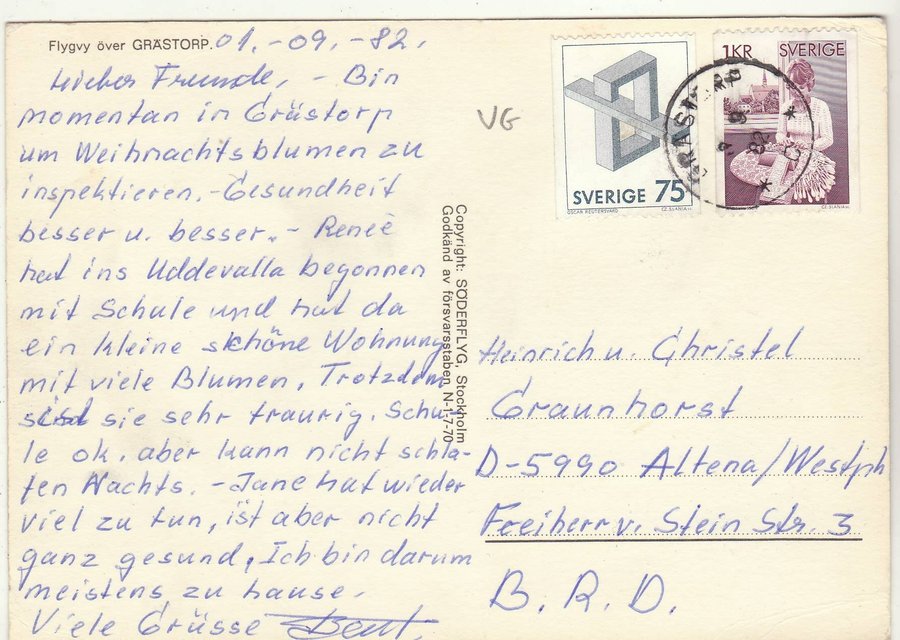 Flygvy över GRÄSTORP. 01.-09.-82.
Lieber Freunde, - Bin
momentan in Grästorp
um Weihnachtsblumen zu
inspektieren. - Gesundheit
besser u. besser. - Reneè
hat ins Uddevalla begonnen
mit Schule und hat da
ein kleine schöne Wohnung
mit viele Blumen. Trotzdem
ist sie sehr traurig. Schu-
le ok. aber kann nicht schla-
fen Nachts. - Jane hat wieder
viel zu tun, ist aber nicht
ganz gesund, Ich bin darum
meistens zu hause.
Viele Grüsse
VG
Copyright: SÖDERFLYG, Stockholm
Godkänd av försvarsstaben N-1-7-70
SVERIGE 75
OSCAR REUTERSVÄRD CZ. SLANIA SC.
1KR SVERIGE
CZ. SLANIA SC.
GRÄSTORP
Heinrich u. Christel
Graunhorst
D-5990 Altena/Westph
Freiherr v. Stein Str. 3
B. R. D.